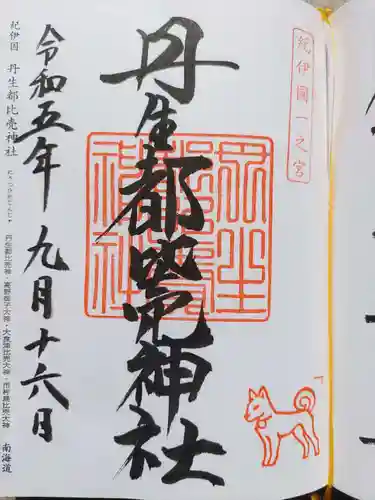 紀伊國一之宮
丹生都比賣神社
令和五年九月十六日
紀伊国 丹生都比売神社
にうつひめじんじゃ
丹生都比売大神・高野御子大神・大食津比売大神・市杵島比売大神
南海道